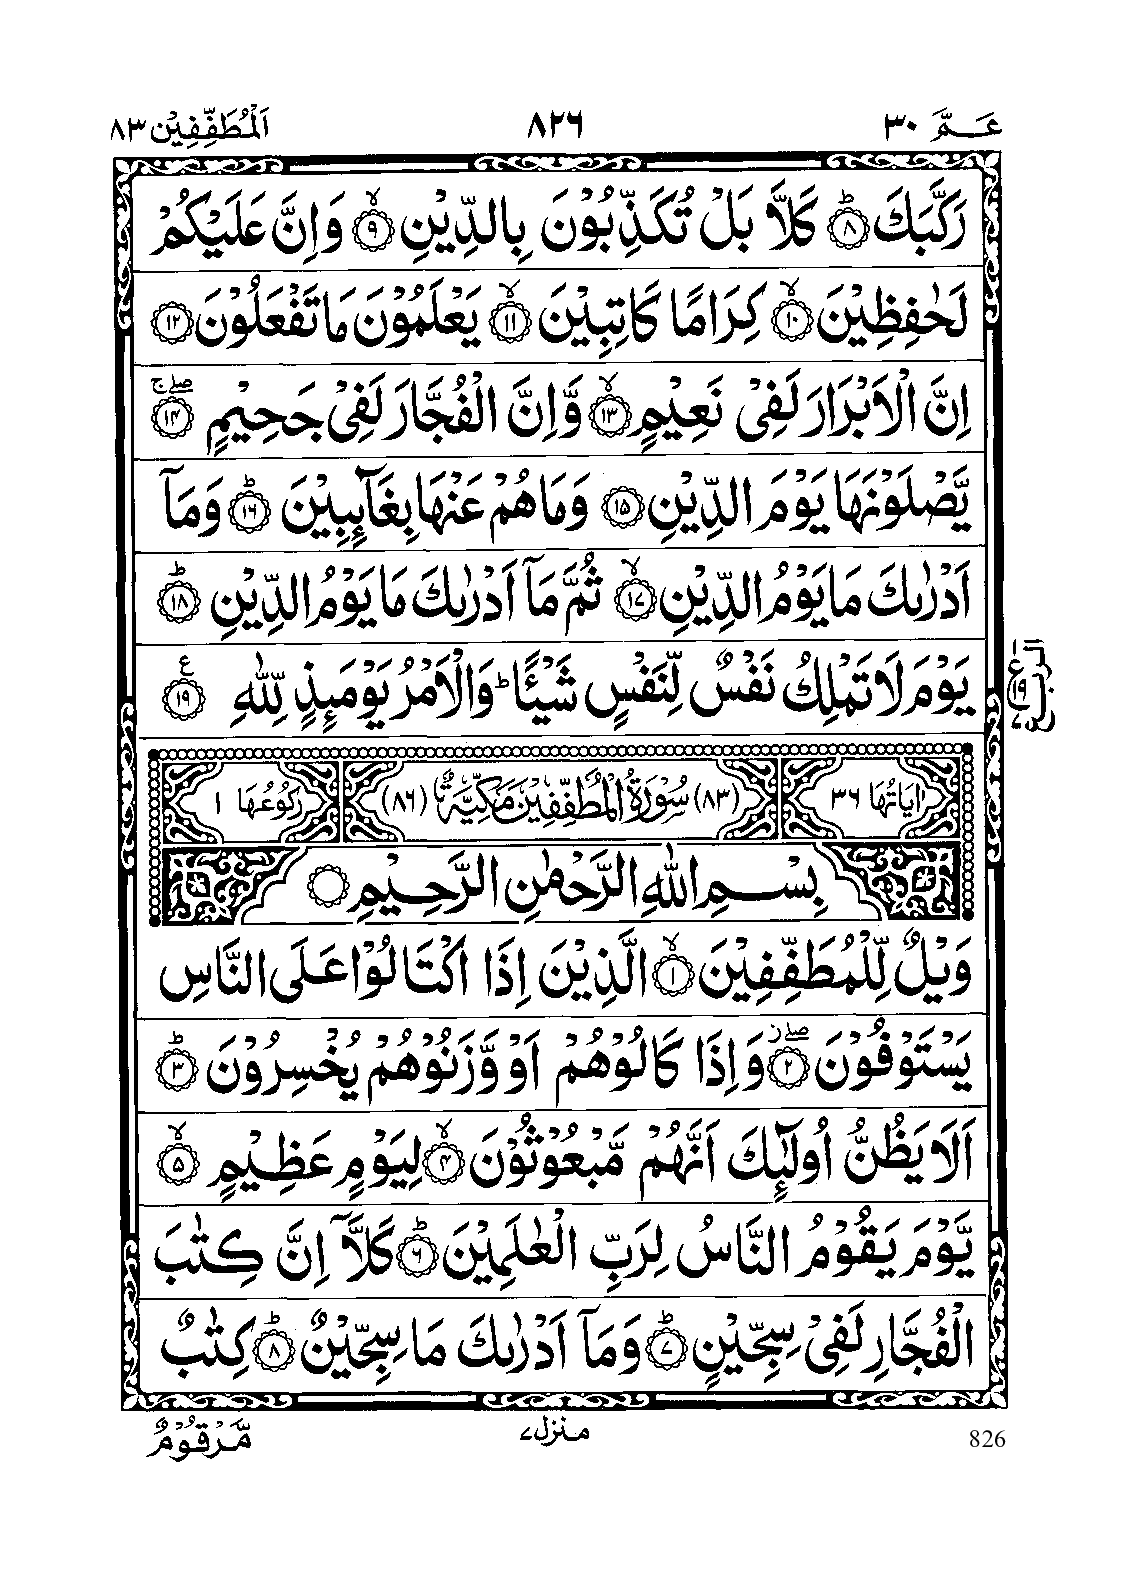 عَـمَّ ٣٠ ٨٢٦ اَلْمُطَفِّفِيْن ٨٣
رَكَّبَكَ ؕ﴿۸﴾ كَلَّا بَلْ تُكَذِّبُوْنَ بِالدِّيْنِ ۙ﴿۹﴾ وَاِنَّ عَلَيْكُمْ
لَحٰفِظِيْنَ ۙ﴿۱۰﴾ كِرَامًا كَاتِبِيْنَ ۙ﴿۱۱﴾ يَعْلَمُوْنَ مَا تَفْعَلُوْنَ ﴿۱۲﴾
اِنَّ الْاَبْرَارَ لَفِيْ نَعِيْمٍ ۙ﴿۱۳﴾ وَّاِنَّ الْفُجَّارَ لَفِيْ جَحِيْمٍ ۖۚ﴿۱۴﴾
يَّصْلَوْنَهَا يَوْمَ الدِّيْنِ ﴿۱۵﴾ وَمَا هُمْ عَنْهَا بِغَآئِبِيْنَ ؕ﴿۱۶﴾ وَمَآ
اَدْرٰىكَ مَا يَوْمُ الدِّيْنِ ۙ﴿۱۷﴾ ثُمَّ مَآ اَدْرٰىكَ مَا يَوْمُ الدِّيْنِ ؕ﴿۱۸﴾
يَوْمَ لَا تَمْلِكُ نَفْسٌ لِّنَفْسٍ شَيْـًٔا ؕ وَالْاَمْرُ يَوْمَئِذٍ لِّلّٰهِ ﴿۱۹﴾ ع
ع ١٩
اٰيَاتُهَا ٣٦ (٨٣) سُوْرَةُ الْمُطَفِّفِيْنَ مَكِّيَّةٌ (٨٦) رُكُوْعُهَا ١
بِسْمِ اللّٰهِ الرَّحْمٰنِ الرَّحِيْمِ
وَيْلٌ لِّلْمُطَفِّفِيْنَ ۙ﴿۱﴾ الَّذِيْنَ اِذَا اكْتَالُوْا عَلَى النَّاسِ
يَسْتَوْفُوْنَ ۖ﴿۲﴾ وَاِذَا كَالُوْهُمْ اَوْ وَّزَنُوْهُمْ يُخْسِرُوْنَ ؕ﴿۳﴾
اَلَا يَظُنُّ اُولٰٓئِكَ اَنَّهُمْ مَّبْعُوْثُوْنَ ۙ﴿۴﴾ لِيَوْمٍ عَظِيْمٍ ۙ﴿۵﴾
يَّوْمَ يَقُوْمُ النَّاسُ لِرَبِّ الْعٰلَمِيْنَ ؕ﴿۶﴾ كَلَّآ اِنَّ كِتٰبَ
الْفُجَّارِ لَفِيْ سِجِّيْنٍ ؕ﴿۷﴾ وَمَآ اَدْرٰىكَ مَا سِجِّيْنٌ ؕ﴿۸﴾ كِتٰبٌ
مَّرْقُوْمٌ منزل ٧ 826